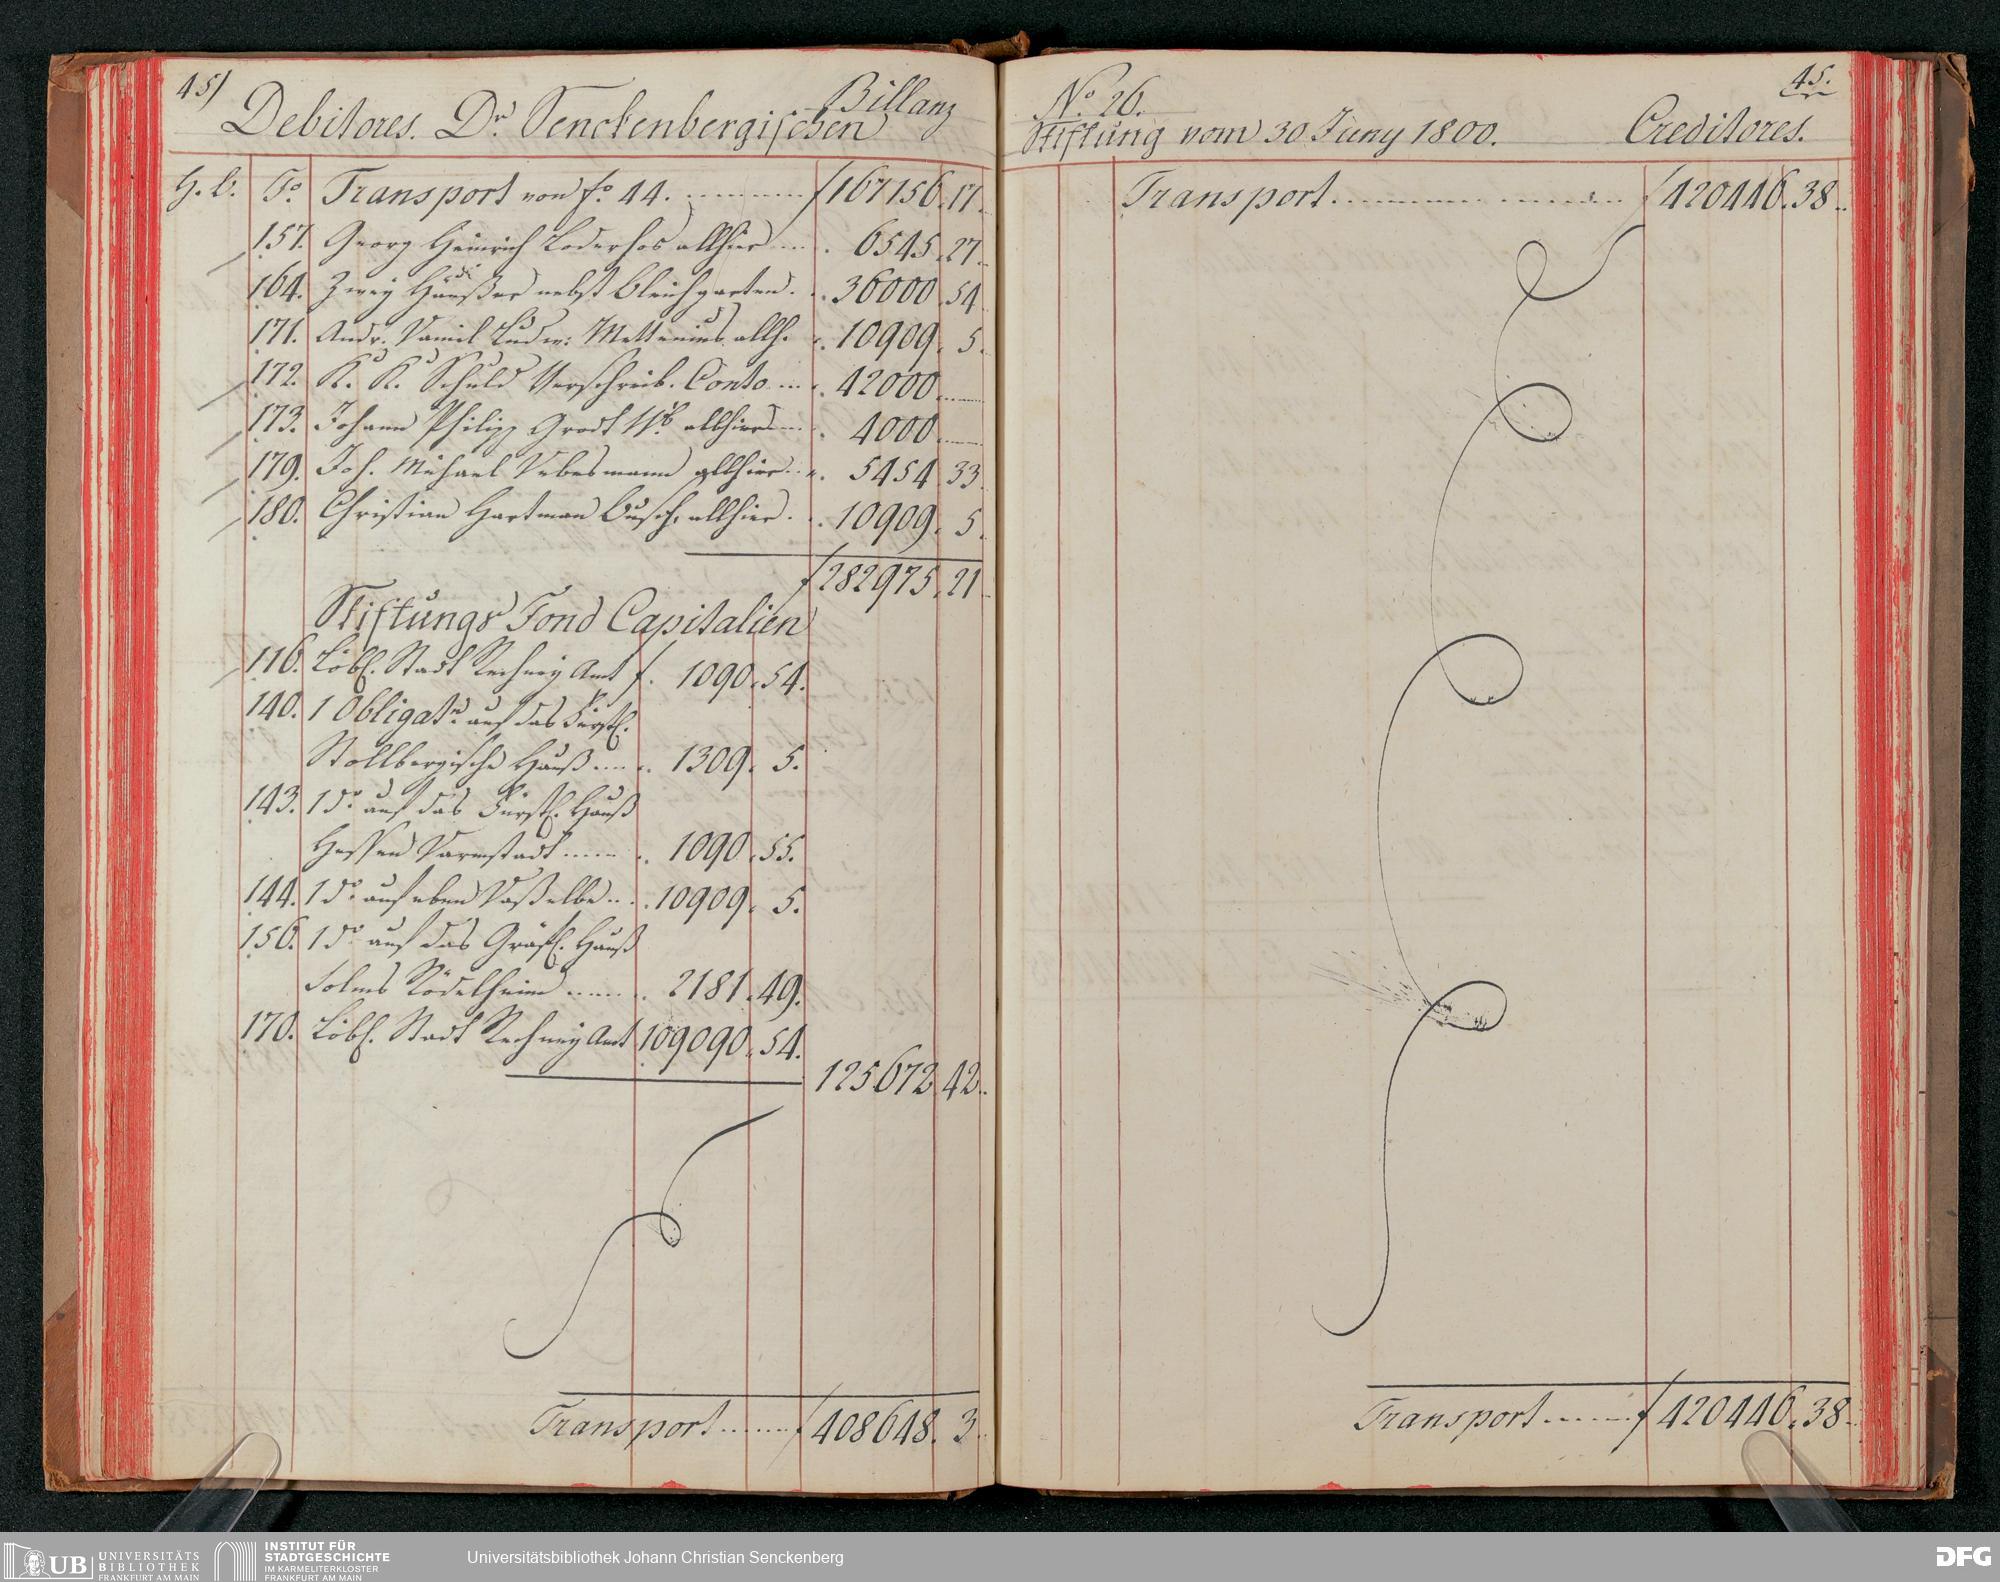 45)
Billanz
Debitores. Dr. Senckenbergischen
H. B. Fo. Transport von fo. 44. f 167156. 17.
157. Georg Heinrich Loderhos allhier 6545. 27.
164. Zwey Häußer nebst Bleichgarten. 36000. 54
171. Andr. Daniel Ludw: Mettenius allh. 10909. 5.
172. K. K. Schuld Verschreib. Conto 42000.
173. Johann Philipp allhier 4000.
179. Joh. Michael allhier 5454. 33.
180. Christian Hartman Busch, allhier. 10909. 5.
f 282975. 21
Stiftungs Fond Capitalien
116. Löbl. Stadt Rechney Amt f. 1090. 54.
140. 1 Obligatn. auf das Fürstl.
Stollbergische Hauß 1309. 5.
143. 1 do. auf das Fürstl. Hauß
Hessen Darmstadt 1090. 55.
144. 1 do. auf eben Daßelbe 10909. 5.
156. 1 do auf das Gräfl. Hauß
Solms Rödelheim 2181. 49.
170. Löbl. Stadt Rechney Amt 109090. 54.
125672. 42.
Transport f 408648. 3.
45.
No. 26.
Stiftung vom 30 Juny 1800. Creditores.
Transport f 420446. 38
Transport f 420446. 38
UB UNIVERSITÄTS
BIBLIOTHEK
FRANKFURT AM MAIN
INSTITUT FÜR
STADTGESCHICHTE
IM KARMELITERKLOSTER
FRANKFURT AM MAIN
Universitätsbibliothek Johann Christian Senckenberg
DFG